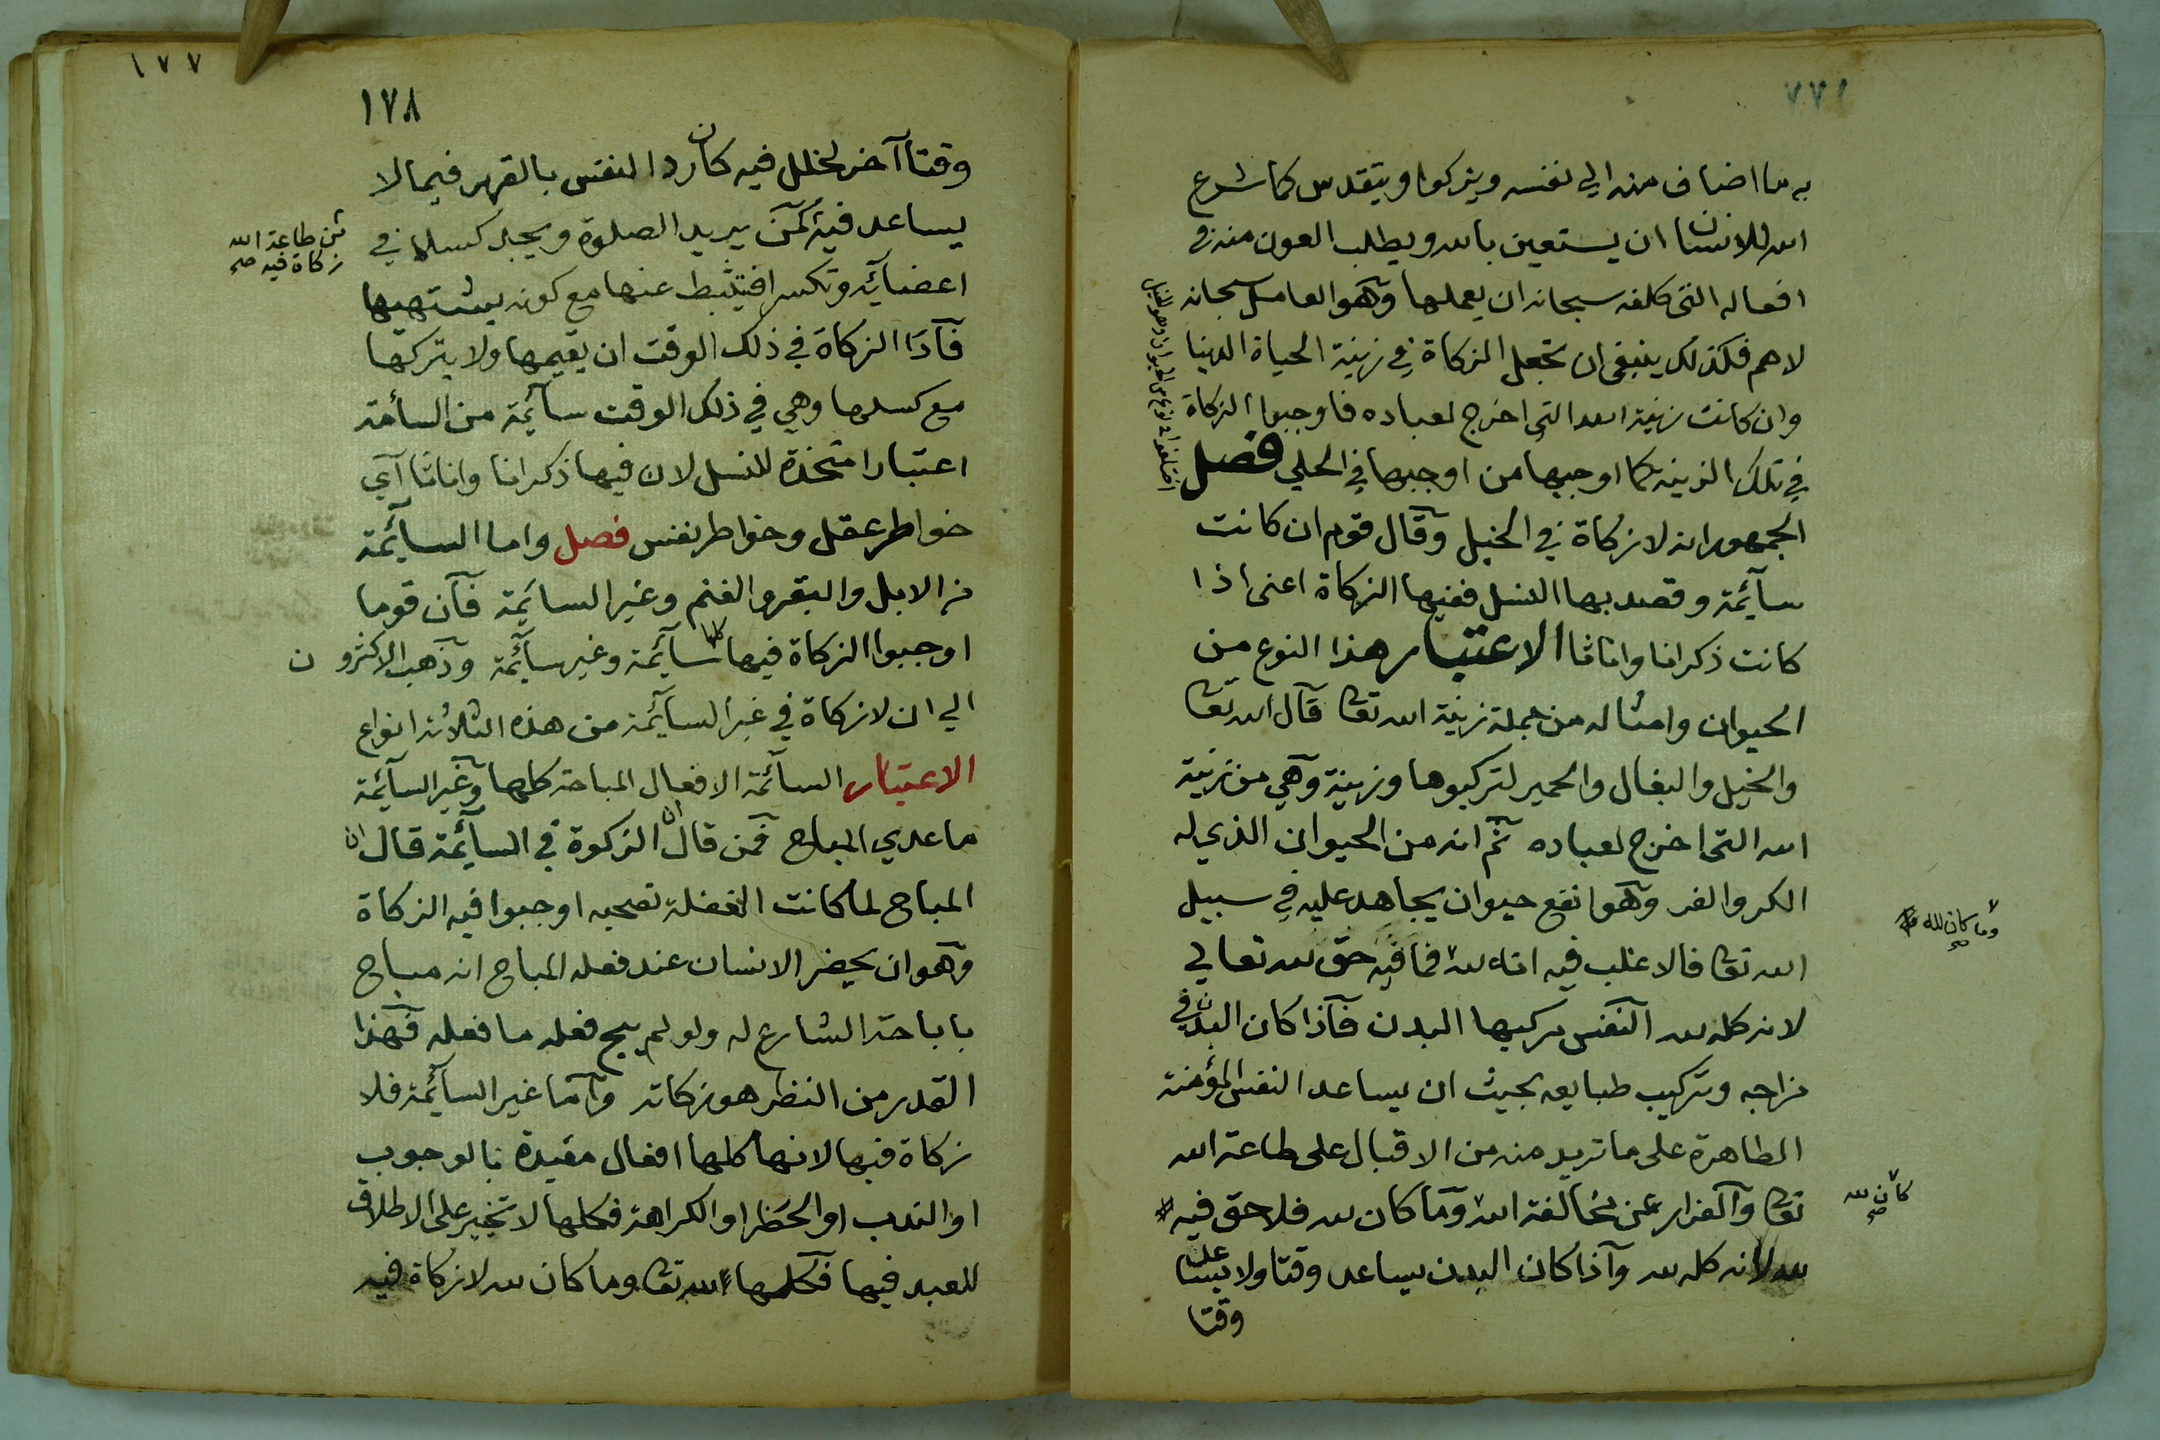 به ما اضاف منه الي نفسه ويزكوا ويتقدس كما شرع
الله للانسان ان يستعين بالله ويطلب العون منه في
افعاله التي كلفه سبحانه ان يعملها وهو العامل سبحانه
لا هم فكذلك ينبغي ان تجعل الزكاة في زينة الحياة الدنيا
وان كانت زينة الله التي اخرج لعباده فاوجبوا الزكاة
في تلك الزينة كما اوجبها من اوجبها في الحلي فصل
الجمهور انه لا زكاة في الخيل وقال قوم ان كانت
سآئمة وقصد بها النسل ففيها الزكاة اعني اذا
كانت ذكرانا واناثا الاعتبار هذا النوع من
الحيوان وامثاله من جملة زينة الله تعا قال الله تعا
والخيل والبغال والحمير لتركبوها وزينة وهي من زينة
الله التي اخرج لعباده ثم انه من الحيوان الذي له
الكر والفر وهو انفع حيوان يجاهد عليه في سبيل
الله تعا فالاغلب فيه انه لله فما فيه حق لله تعالي
لانه كله لله النفس مركبها البدن فاذا كان البدن في
مزاجه وتركيب طبايعه بحيث ان يساعد النفس المؤمنة
الطاهرة على ما تريد منه من الاقبال على طاعة الله
تعا والفرار عن مخالفة الله وما كان لله فلا حق فيه
لله لانه كله لله واذا كان البدن يساعد وقتا ولا يساعد
وقتا
وما كان لله
كان لله
١٧٧
١٧٨
وقتا آخر لخلل فيه كان رد النفس بالقهر فيما لا
يساعد فيه كمن يريد الصلوة ويجد كسلا في
اعضآئه وتكسرا فيتثبط عنها مع كونه يشتهيها
فآدا الزكاة في ذلك الوقت ان يقيمها ولا يتركها
مع كسلها وهي في ذلك الوقت سآئمة من السأمة
اعتبارا متخذة للنسل لان فيها ذكرانا واناثا آي
خواطر عقل وخواطر نفس فصل واما السآئمة
من الابل والبقر والغنم وغير السائمة فان قوما
اوجبوا الزكاة فيها كلها سآئمة وغير سآئمة وذهب الاكثرون
الي ان لا زكاة في غير السآئمة من هذه الثلاثة انواع
الاعتبار السآئمة الافعال المباحة كلها وغير السآئمة
ما عدي المباح فمن قال ان الزكوة في السآئمة قال ان
المباح لما كانت الغفلة تصحبه اوجبوا فيه الزكاة
وهو ان يحضر الانسان عند فعله المباح انه مباح
باباحة الشارع له ولو لم يبح فعله ما فعله فهذا
القدر من النظر هو زكاته واما غير السآئمة فلا
زكاة فيها لانها كلها افعال مقيدة بالوجوب
او الندب او الحظر او الكراهة فكلها لا تخيير على الاطلاق
للعبد فيها فكلها لله تعا وما كان لله لا زكاة فيه
من طاعة الله
زكاة فيه صح